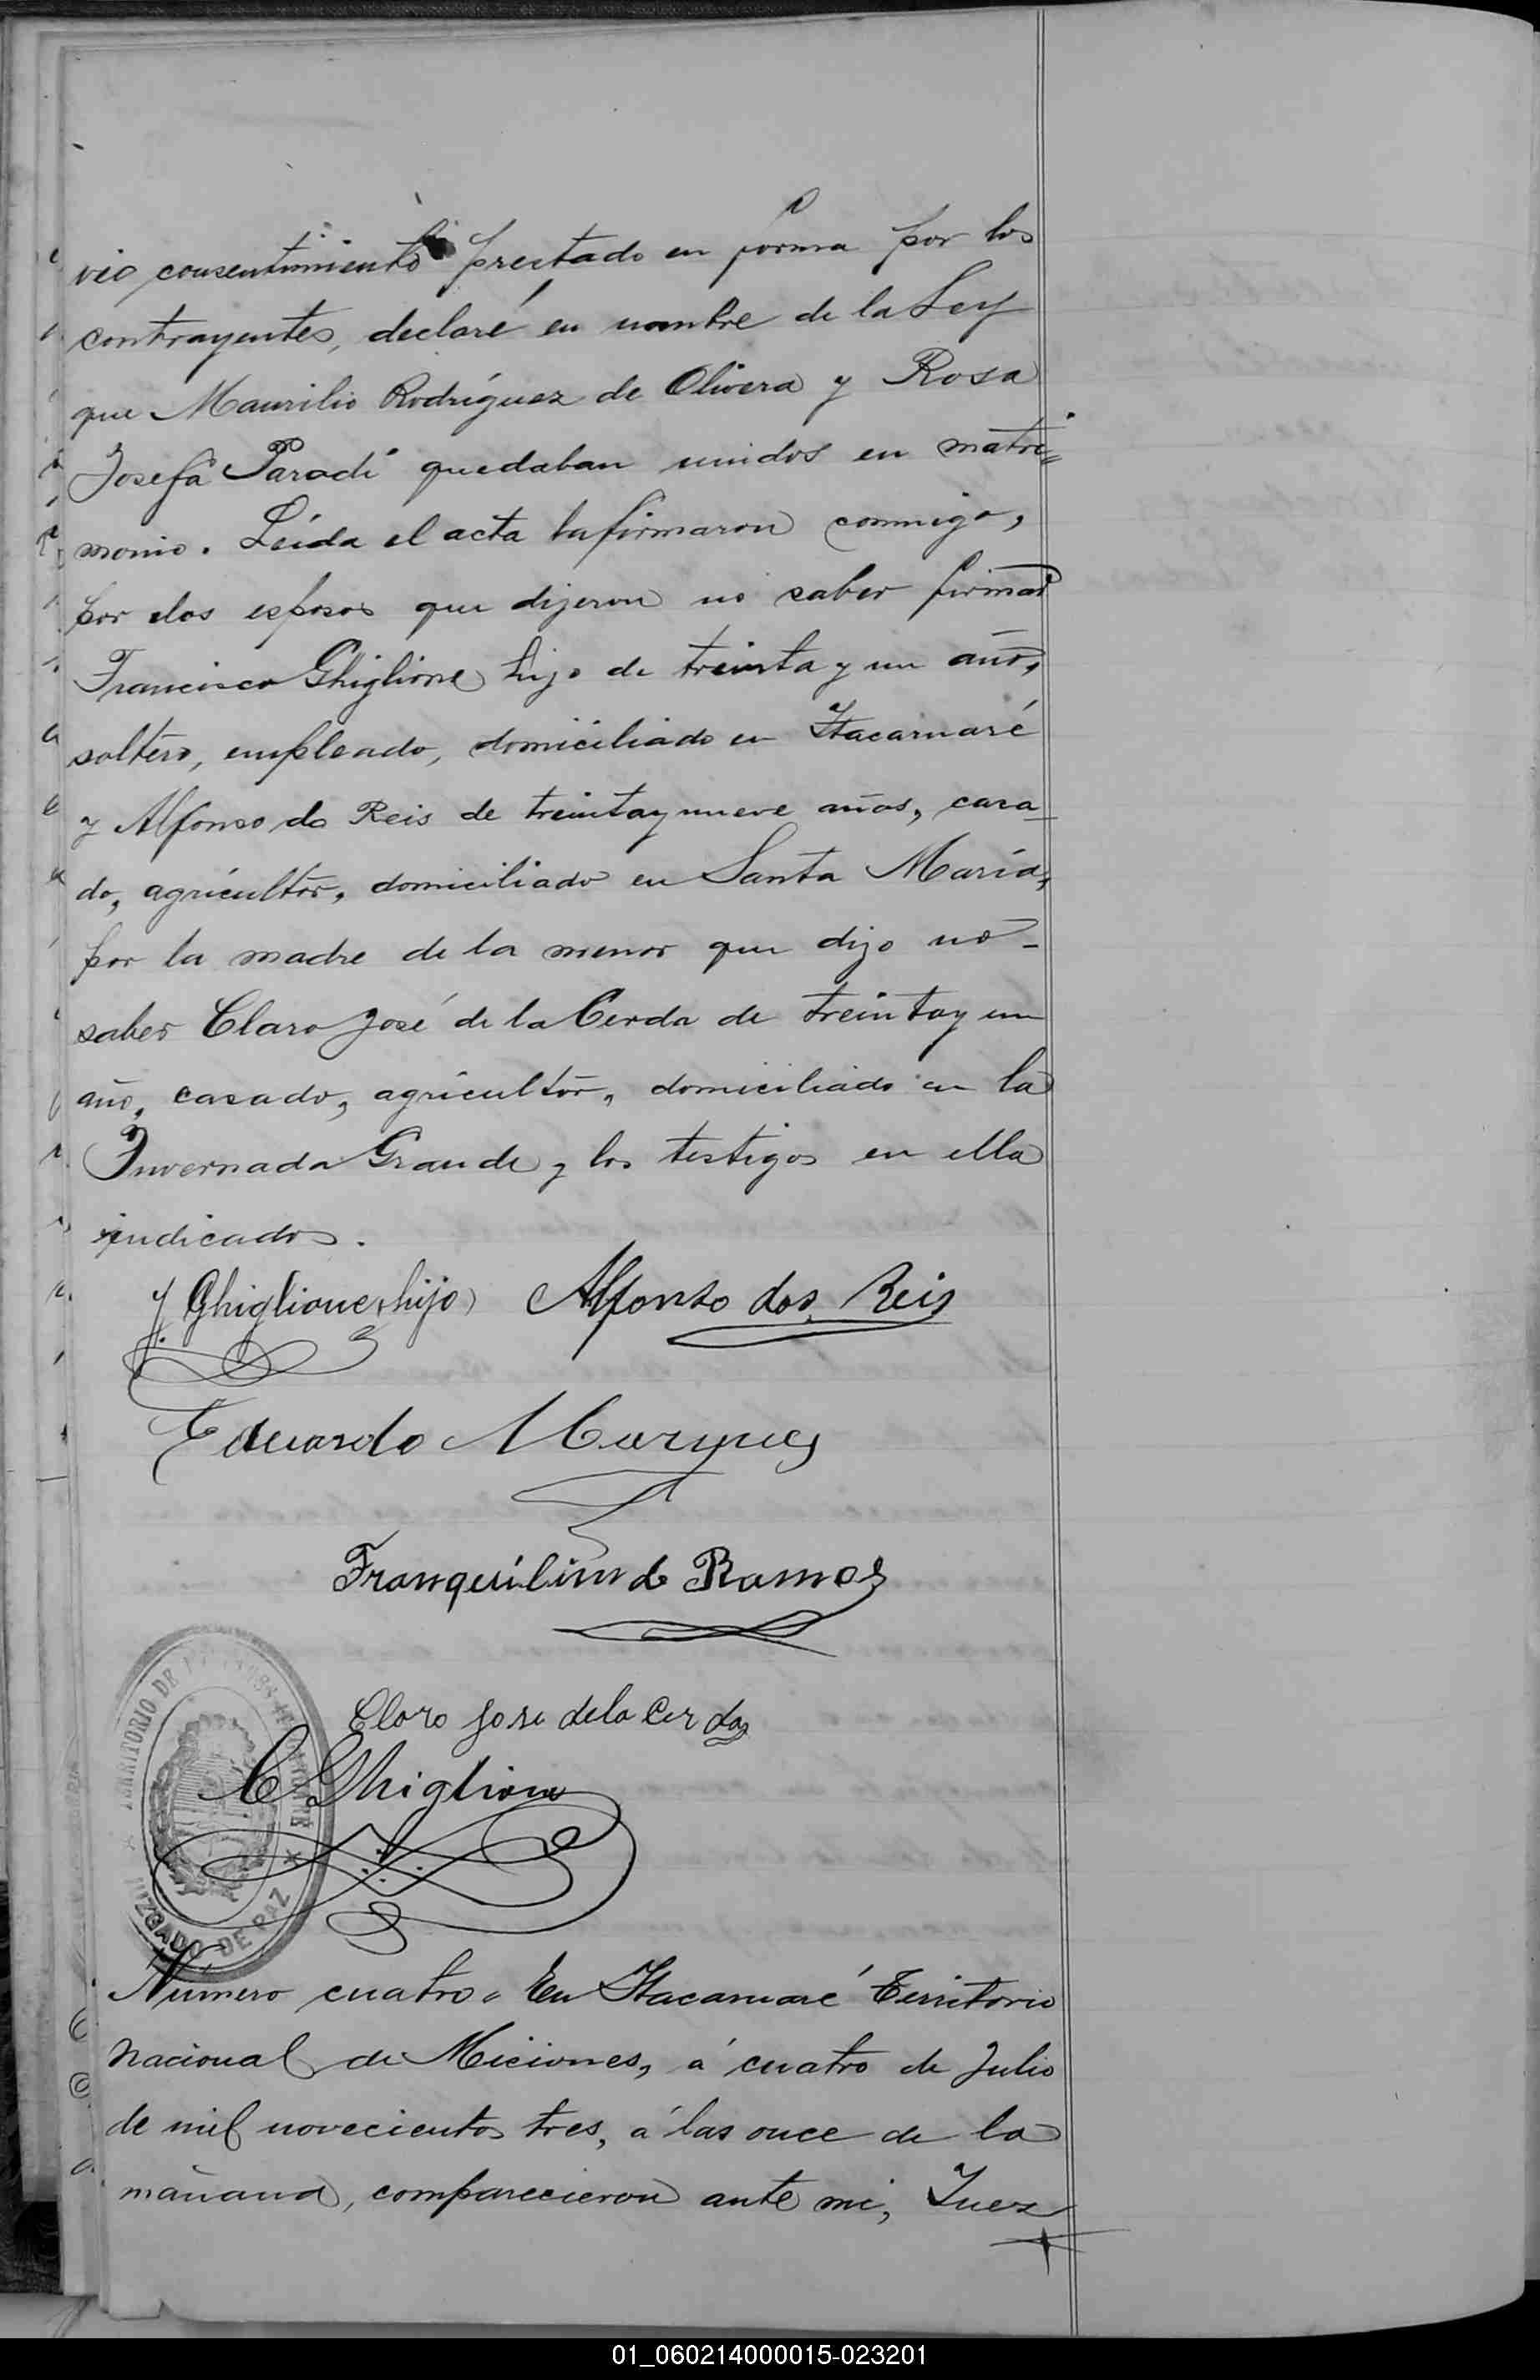 vio consentimiento prestado en forma por los
contrayentes, declaré en nombre de la Ley
que Maurilio Rodríguez de Olivera y Rosa
Josefa Parodi quedaban unidos en matri=
monio. Leída el acta la firmaron conmigo,
por los esposos que dijeron no saber firmar
Francisco Ghiglione hijo de treinta y un año,
soltero, empleado, domiciliado en Itacaruaré
y Alfonso do Reis de treinta y nueve años, casa_
do, agricultor, domiciliado en Santa María,
por la madre de la menor que dijo no_
saber Claro José de la Cerda de treinta y un
año, casado, agricultor, domiciliado en la
Invernada Grande y los testigos en ella
indicados.
f. Ghiglione (hijo) Alfonso dos Reis
Eduardo Marques
Franquilino de Ramos
TERRITORIO DE
JUZGADO DE PAZ
Claro Jose de la Cerda
C Ghiglione
Número cuatro. En Itacaruaré Territorio
Nacional de Miciones, á cuatro de Julio
de mil novecientos tres, á las once de la
mañana, comparecieron ante mi, Juez
01_060214000015-023201